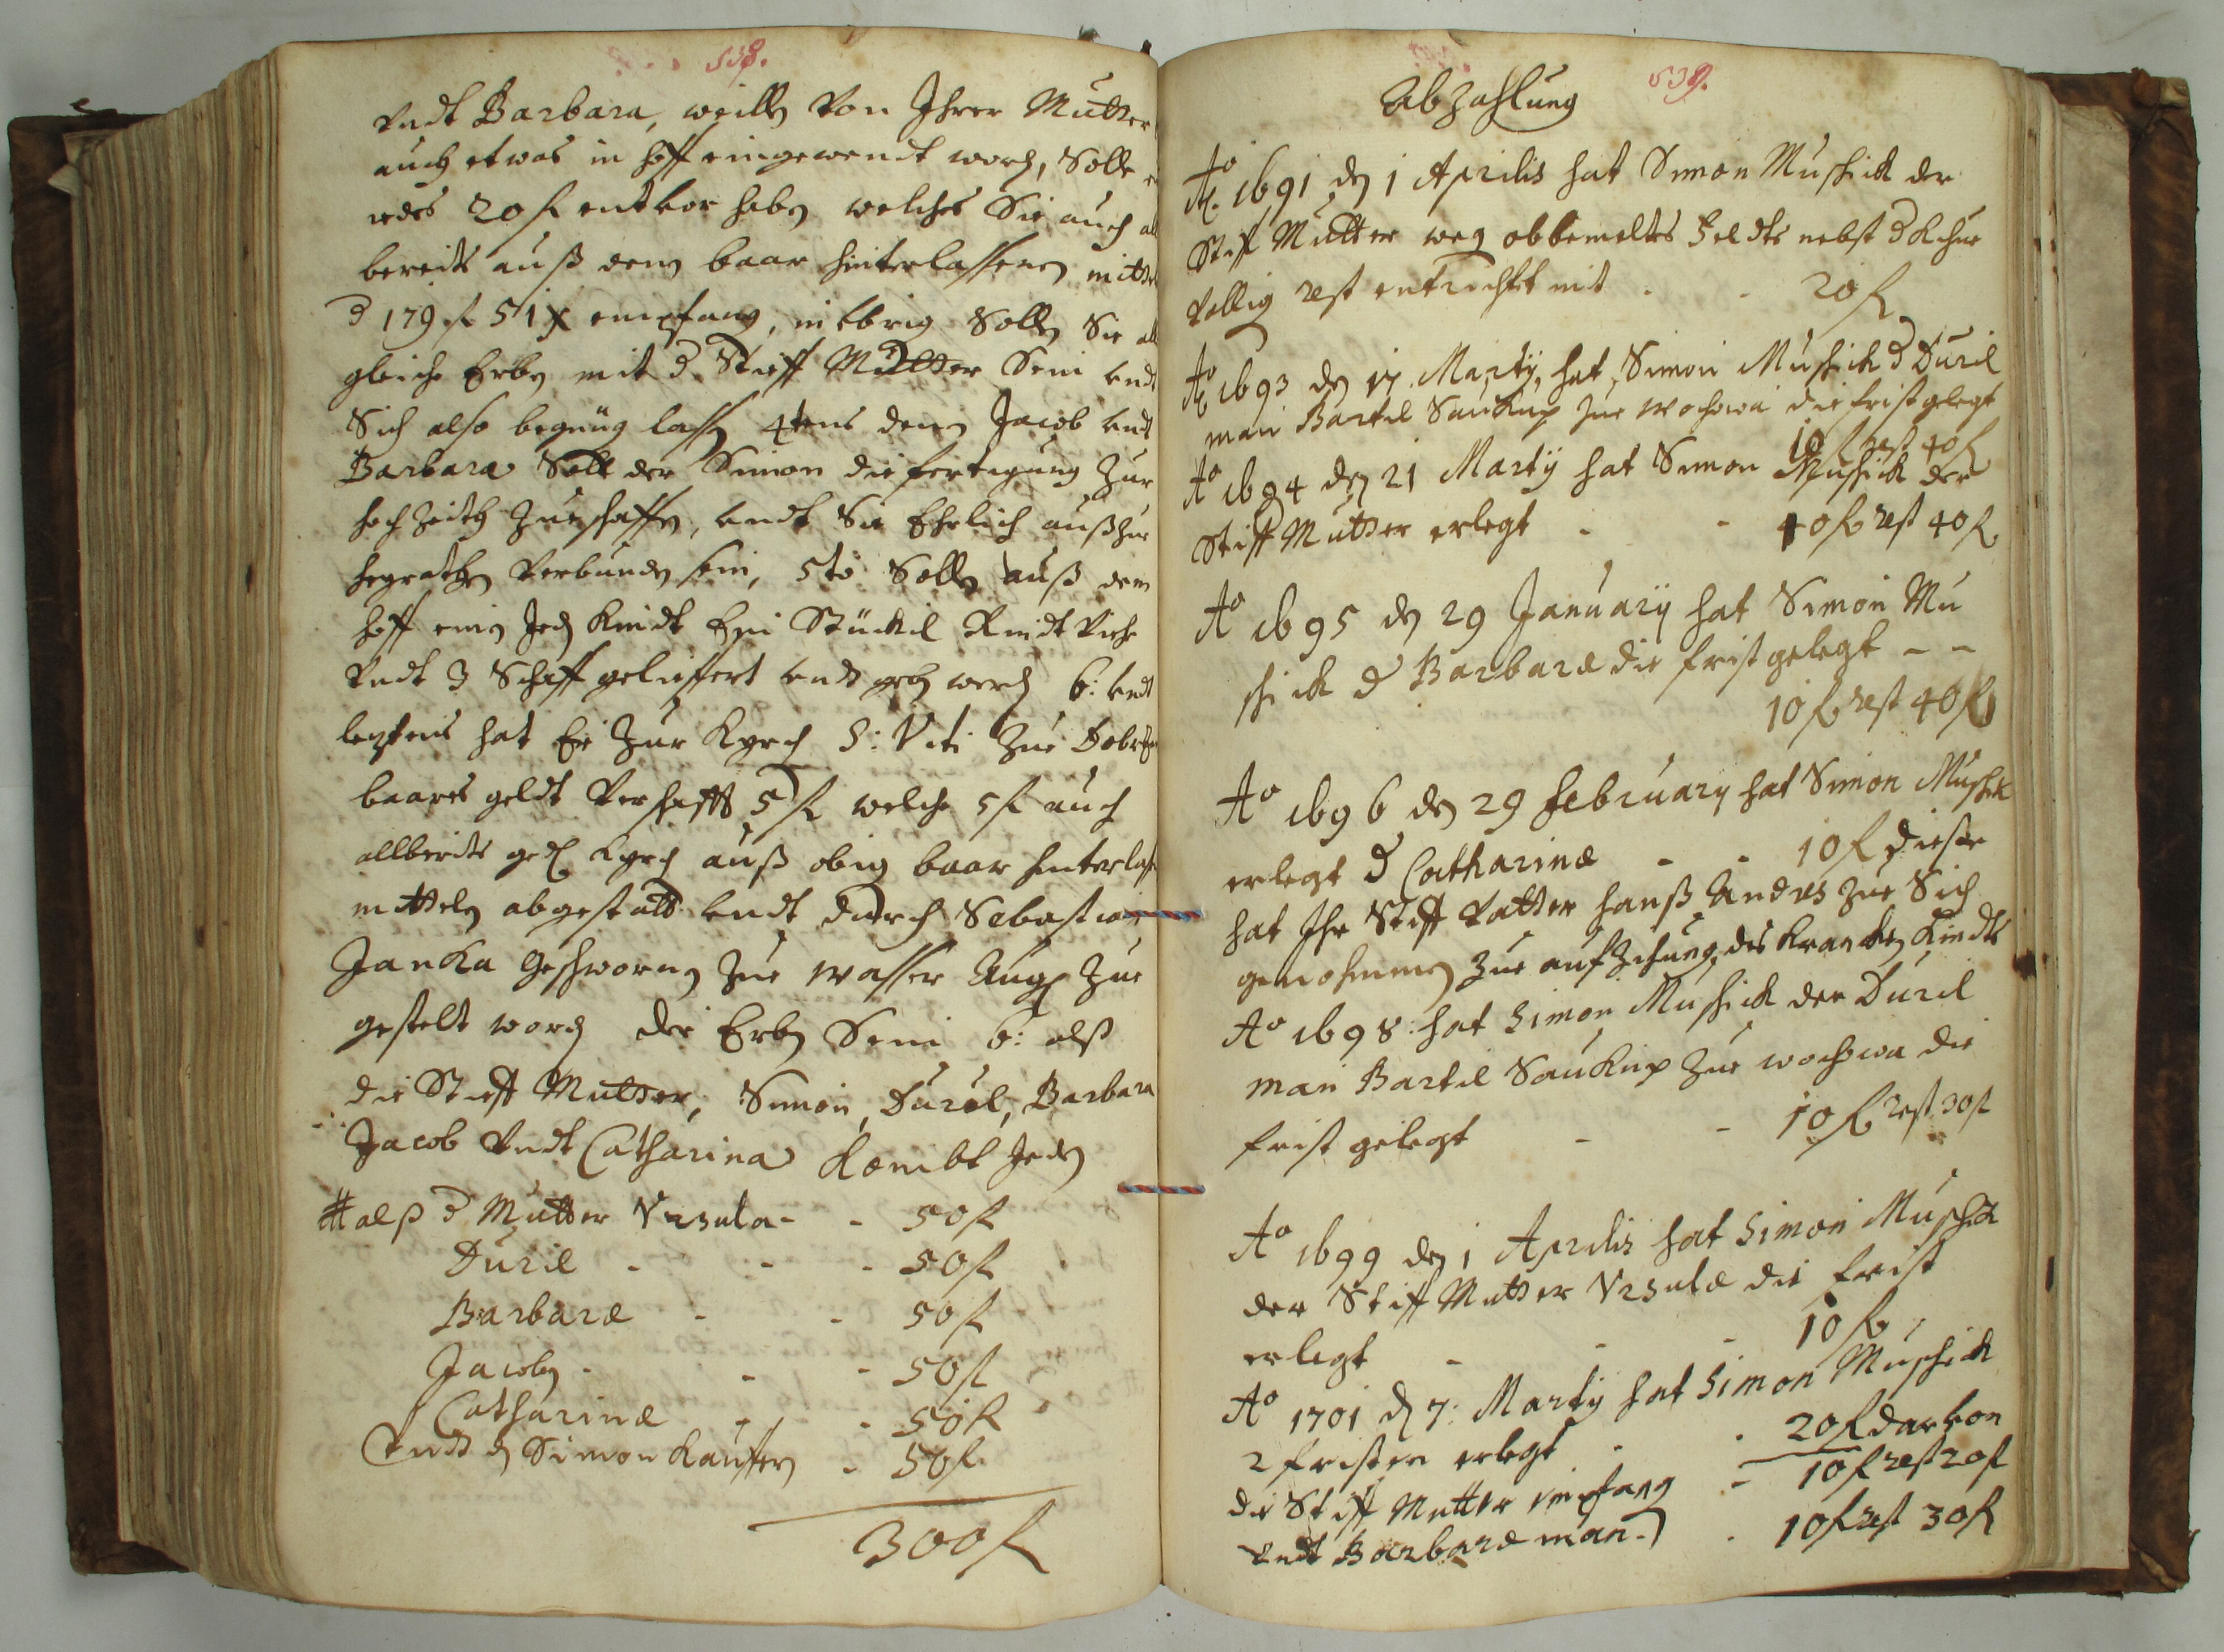 538.
Vndt Barbara, weillen Von Ihrer Mutter
auch etwas in hoff eingewendt worden, Solle
iedes 20 fl entvor haben welches Sie auch all
bereits auß dem baar hinterlassenen mittel
d 179 fl 51 x empfang, in vbrig Sollen Sie all
gleiche Erben mit d Stieff Mutter Sein vndt
Sich also begnüg lassen 4tens denen Jacob vndt
Barbara Soll der Simon die fertigung Zur
hochzeith Zueschaffen, vndt Sie Ehrlich außzue
hegrathen Verbunden sein, 5to Sollen auß dem
hoff einen Jeden Kindt Ein Stückil Rindt Viehe
Vndt 3 Schaff gelieffert vndt geben werden 6: vndt
leztens hat Er Zur Kyrch S: Viti Zue
baares geldt Verschafft 5 fl welche 5 fl auch
allbereits ged Kyrch auß obig baar hinterlaß
mitteln abgestatt vndt durch Sebastian
Janka Geschwornen Zue Wasser Augezd Zue
gestelt worden die Erben Sein 6: alß
die Stieff Mutter, Simon, Duril, Barbara
Jacob Vndt Catharina Kombt Jeden
# alß d Mutter Vrsula - - 50 fl
Duril - - - 50 fl
Barbaræ - - 50 fl
Jacoben - - - 50 fl
Catharinæ - - 50 fl
Vndt den Simon Kauffern - 50 fl
300 fl
539.
Abzahlung
Ao. 1691 den 1 Aprilis hat Simon Mushick der
Stiff Mutter weg obbemeltes Feldts nebst d Kehue
Vollig rest entrichtet mit - - 20 fl
Ao 1693 den 17. Martÿ, hat Simon Mushick d Duril
man Bartel Saukup Zue Wochowa die frist gelegt
10 fl rest 40 fl
Ao 1694 den 21 Martÿ hat Simon Mushick der
Stiff Mutter erlegt - - 10 fl rest 40 fl
Ao 1695 den 29 Januarÿ hat Simon Mu
shick d Barbaræ die frist gelegt - -
10 fl rest 40 fl
Ao 1696 den 29 februarÿ hat Simon Mushik
erlegt d Catharinæ - - 10 fl diese
hat Ihr Stiff Vatter hanß Andres Zue Sich
genohmmen Zue aufzihung des Krancken Kindts
Ao 1698: hat Simon Mushick der Duril
man Bartel Saukup Zue wochowa die
frist gelegt - - 10 fl rest 30 fl
Ao 1699 den 1 Aprilis hat Simon Mushick
der Stiff Mutter Vrsulæ die frist
erlegt - - - 10 fl
Ao 1701 d 7: Martÿ hat Simon Mushick
2 fristen erlegt - - 20 fl darvon
die Stiff Mutter empfang - 10 fl rest 20 fl
Vndt Barbaræ man - 10 fl rest 30 fl